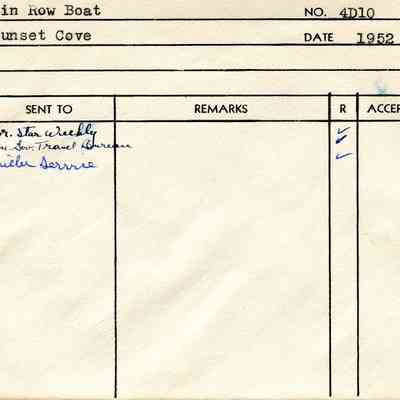 in Row Boat NO. 4D10
unset Cove DATE 1952
SENT TO REMARKS R ACCEP
r. Star Weekly
Gov. Travel Bureau
Service